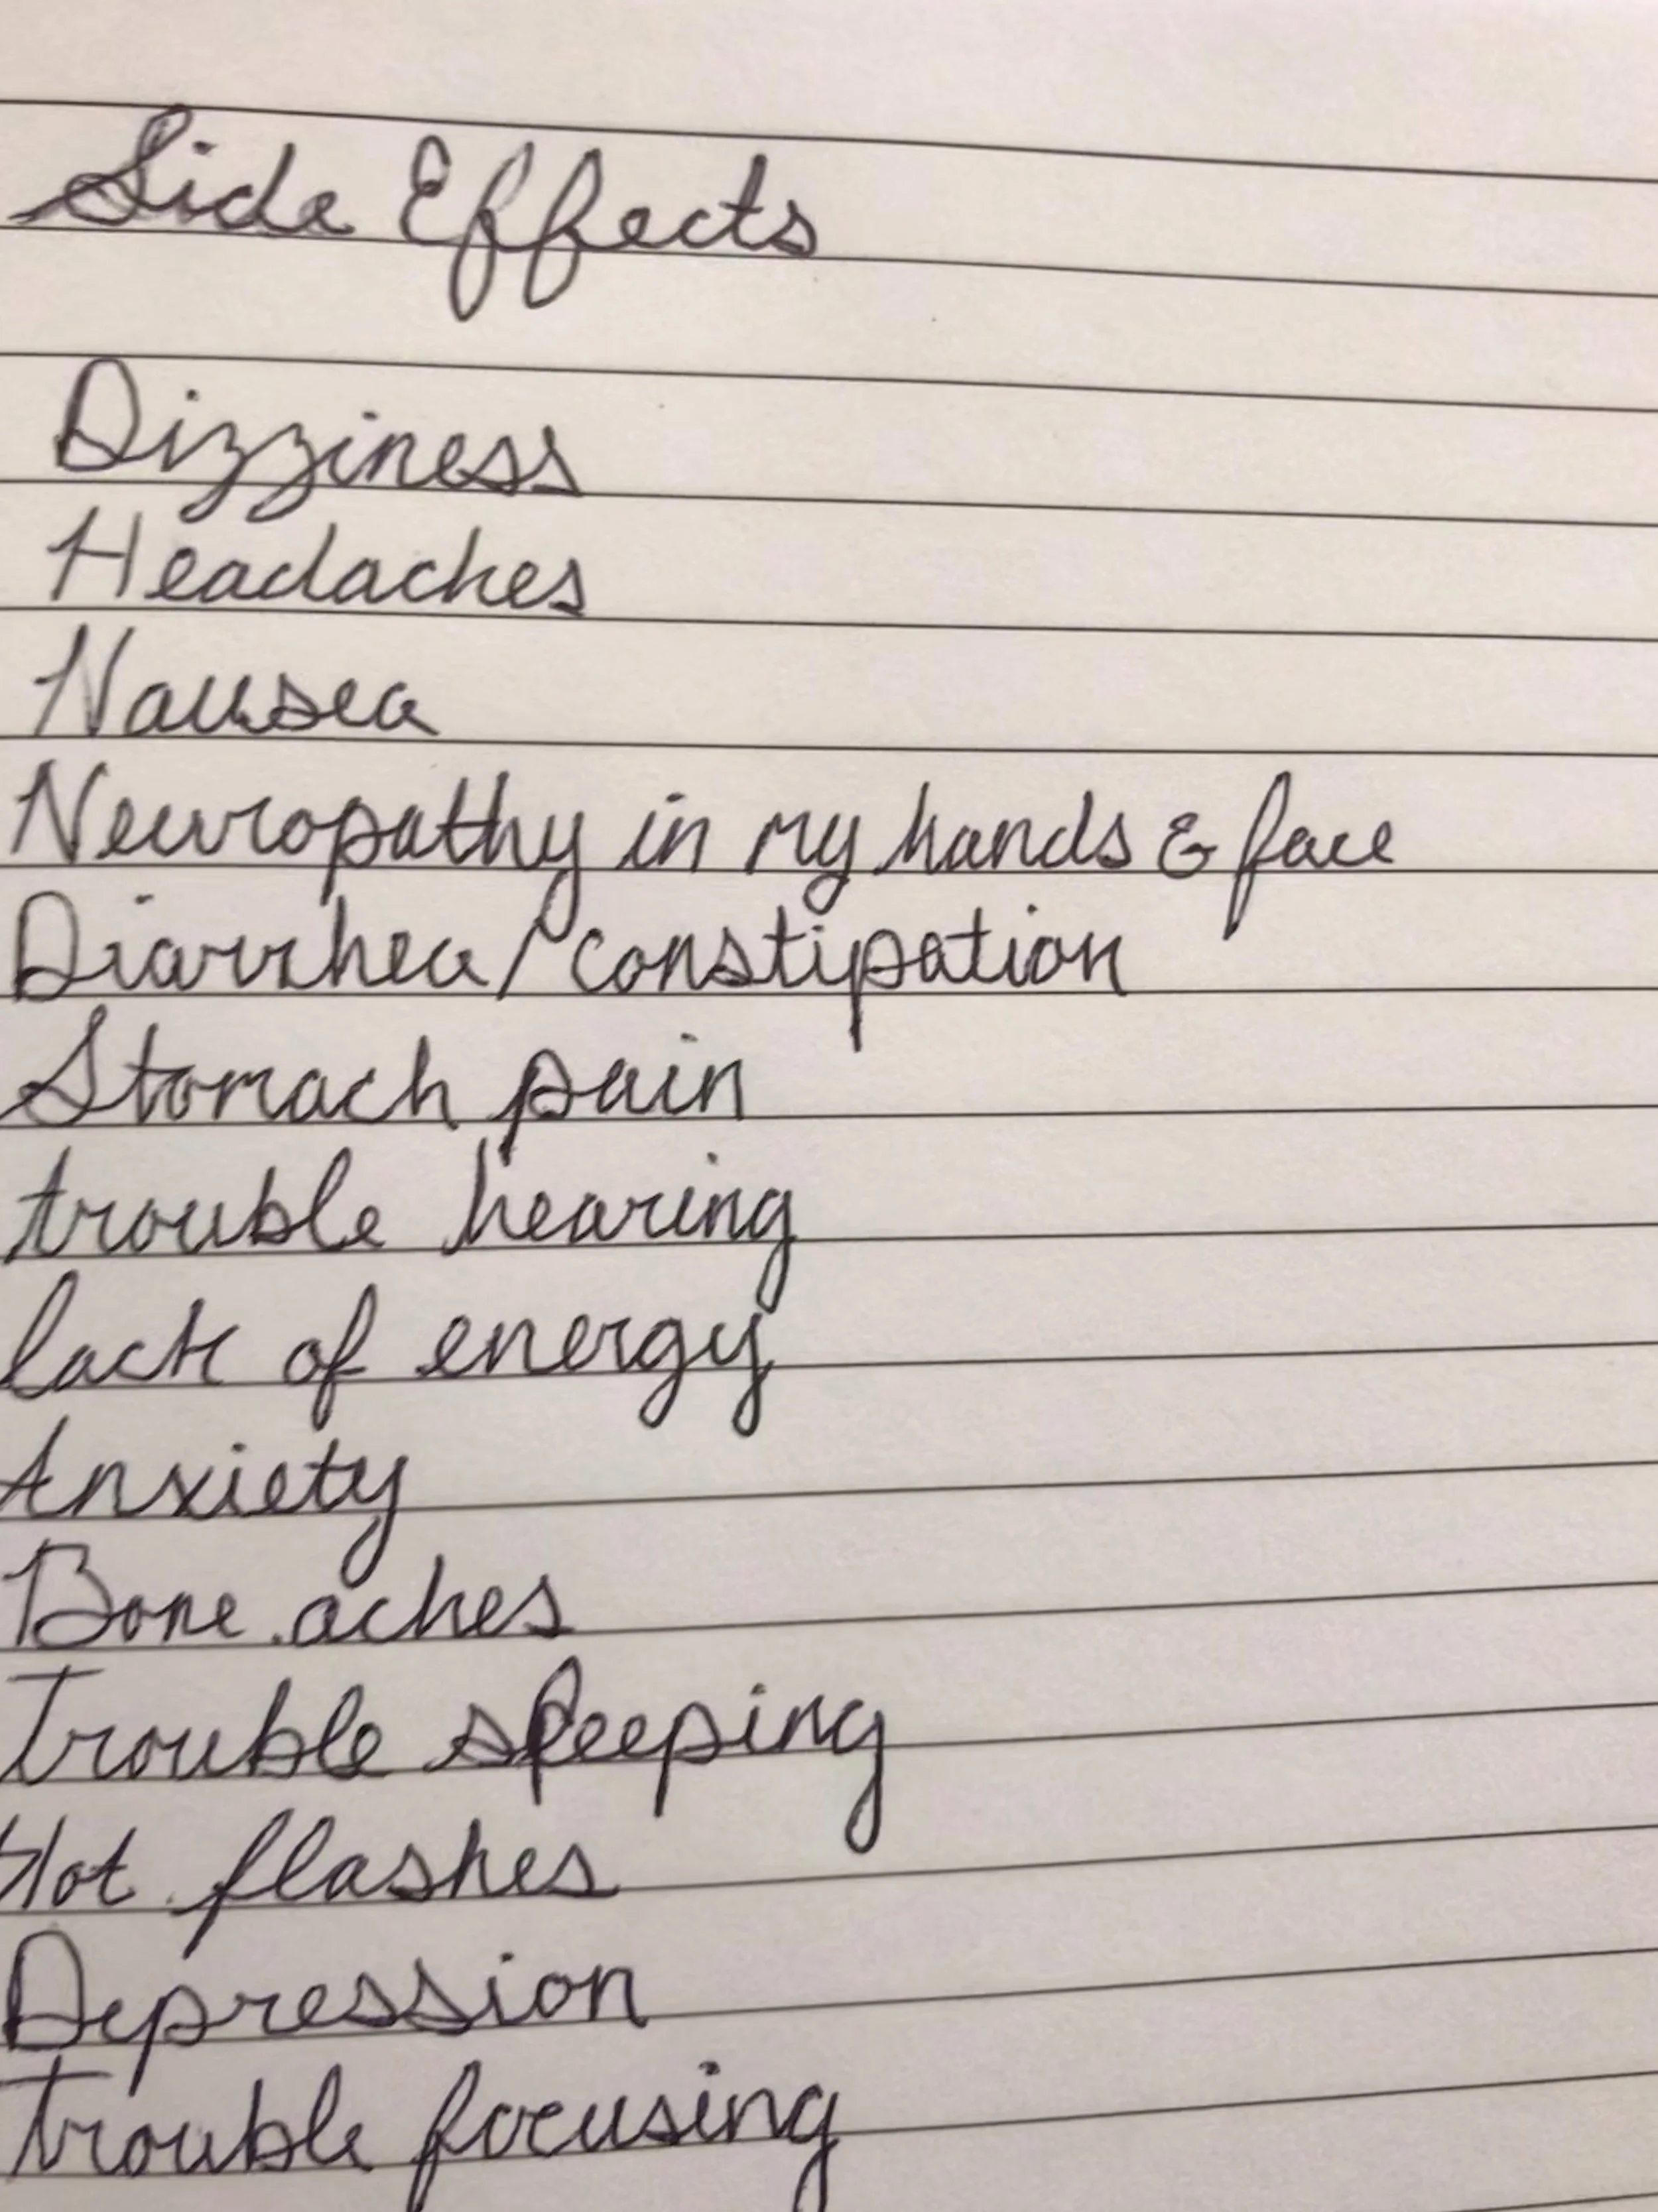 Side Effects
Dizziness
Headaches
Nausea
Neuropathy in my hands & face
Diarrhea/constipation
Stomach pain
trouble hearing
lack of energy
Anxiety
Bone aches
Trouble sleeping
Hot flashes
Depression
Trouble focusing